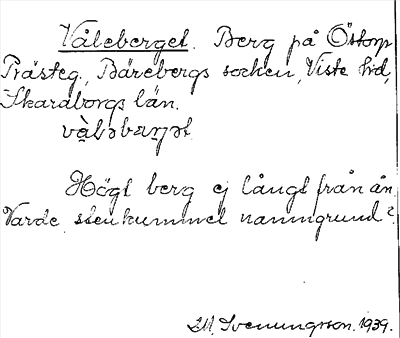 Våleberget. Berg på Östorp
Prästeg., Bärebergs socken, Viste hd,
Skaraborgs län.
Högt berg ej långt från ån
Varde stenkummel namngrund?
Svenungsson. 1939.